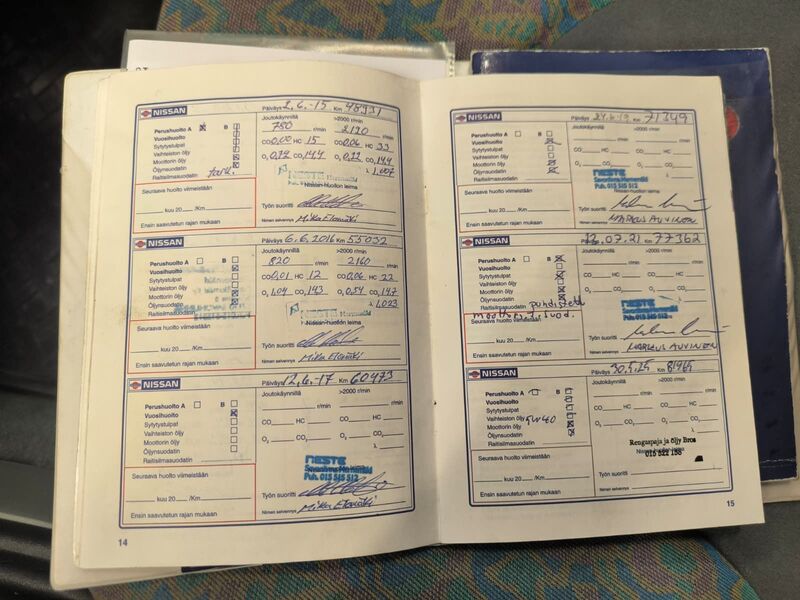 NISSAN
Päiväys 2.6.-15 Km 48931
Perushuolto A B
Vuosihuolto
Sytytystulpat
Vaihteiston öljy
Moottorin öljy
Öljynsuodatin
Raitisilmasuodatin
Joutokäynnillä >2000 r/min
750 r/min 2120 r/min
CO 0,00 HC 15 CO 0,06 HC 33
CO₂ 14,4
1.007
NESTE
Nissan-huollon leima
Seuraava huolto viimeistään
kuu 20 /Km
Ensin saavutetun rajan mukaan
Työn suoritti
Nimen selvennys Mika Elomäki
NISSAN
Päiväys 6.6.2016 Km 55032
Perushuolto A B
Vuosihuolto
Sytytystulpat
Vaihteiston öljy
Moottorin öljy
Öljynsuodatin
Raitisilmasuodatin
Joutokäynnillä >2000 r/min
820 r/min 2160 r/min
CO 0,01 HC 12 CO 0,06 HC 22
O₂ 1,04 CO₂ 14,3 O₂ 0,54 CO₂ 14,7
1.023
NESTE
Nissan-huollon leima
Seuraava huolto viimeistään
kuu 20 /Km
Ensin saavutetun rajan mukaan
Työn suoritti
Nimen selvennys Mika Elomäki
NISSAN
Päiväys 12.6.-17 Km 60473
Perushuolto A B
Vuosihuolto
Sytytystulpat
Vaihteiston öljy
Moottorin öljy
Öljynsuodatin
Raitisilmasuodatin
Joutokäynnillä >2000 r/min
r/min r/min
CO HC CO HC
O₂ CO₂ O₂ CO₂
NESTE
Savonlinna Harmamäki
Puh. 015 515 512
Seuraava huolto viimeistään
kuu 20 /Km
Ensin saavutetun rajan mukaan
Työn suoritti
Nimen selvennys Mika Elomäki
14
NISSAN
Päiväys 24.6-19 Km 71349
Perushuolto A B
Vuosihuolto
Sytytystulpat
Vaihteiston öljy
Moottorin öljy
Öljynsuodatin
Raitisilmasuodatin
Joutokäynnillä >2000 r/min
r/min r/min
CO HC CO HC
O₂ CO₂ O₂ CO₂
NESTE
Savonlinna Harmamäki
Puh. 015 515 512
Nissan-huollon leima
Seuraava huolto viimeistään
kuu 20 /Km
Ensin saavutetun rajan mukaan
Työn suoritti
Nimen selvennys MARKUS AUVINEN
NISSAN
Päiväys 12.07.21 Km 77362
Perushuolto A B
Vuosihuolto
Sytytystulpat
Vaihteiston öljy
Moottorin öljy
Öljynsuodatin
Raitisilmasuodatin puhdistettu
Joutokäynnillä >2000 r/min
r/min r/min
CO HC CO HC
O₂ CO₂ O₂ CO₂
NESTE
Puh. 015 515 512
Seuraava huolto viimeistään
kuu 20 /Km
Ensin saavutetun rajan mukaan
Työn suoritti
Nimen selvennys MARKUS AUVINEN
NISSAN
Päiväys Km
Perushuolto A B
Vuosihuolto
Sytytystulpat
Vaihteiston öljy
Moottorin öljy
Öljynsuodatin
Raitisilmasuodatin
Joutokäynnillä >2000 r/min
r/min r/min
CO HC CO HC
O₂ CO₂ O₂ CO₂
Rengaspaja ja öljy Bros
015 522 188
Seuraava huolto viimeistään
kuu 20 /Km
Ensin saavutetun rajan mukaan
Työn suoritti
Nimen selvennys
15